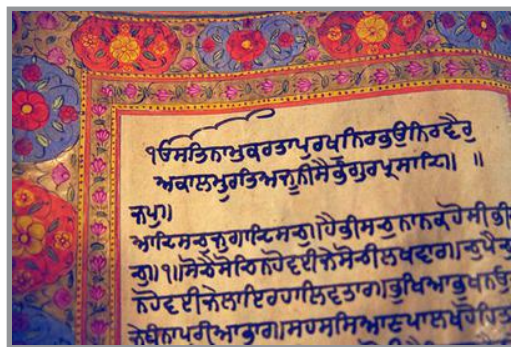 ੴਸਤਿਨਾਮੁਕਰਤਾਪੁਰਖੁਨਿਰਭਉਨਿਰਵੈਰੁ
ਅਕਾਲਮੂਰਤਿਅਜੂਨੀਸੈਭੰਗੁਰਪ੍ਰਸਾਦਿ॥ ॥
ਜਪੁ॥
ਆਦਿਸਚੁਜੁਗਾਦਿਸਚੁ॥ਹੈਭੀਸਚੁਨਾਨਕਹੋਸੀਭੀ
ਚੁ॥੧॥ਸੋਚੈਸੋਚਿਨਹੋਵਈਜੇਸੋਚੀਲਖਵਾਰ॥ਚੁਪੈਚੁ
ਨਹੋਵਈਜੇਲਾਇਰਹਾਲਿਵਤਾਰ॥ਭੁਖਿਆਭੁਖਨਉ
ਜੇਬੰਨਾਪੁਰੀਆਭਾਰ॥ਸਹਸਸਿਆਣਪਾਲਖਹੋਹਿਤ